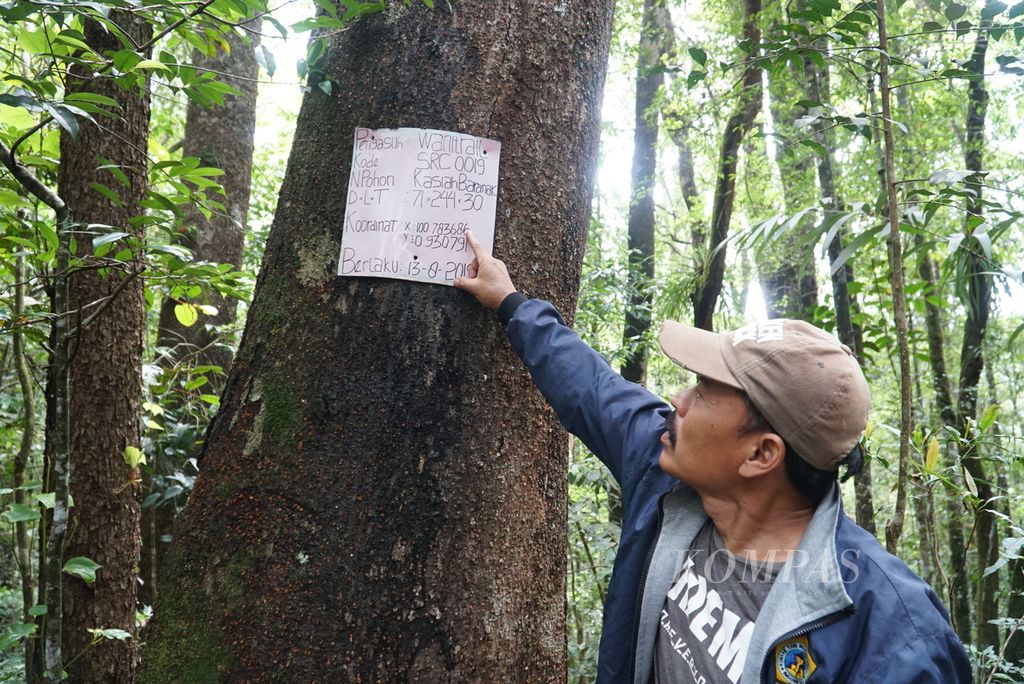 Pengasuh : Wanitra!!
Kode : SRC 0019
N Pohon : Kasiah Baranak
D×L×T : 71×244×30
Koordinat : x:100.783686
y:0.93079
Berlaku : 13-8-201
KOMPAS